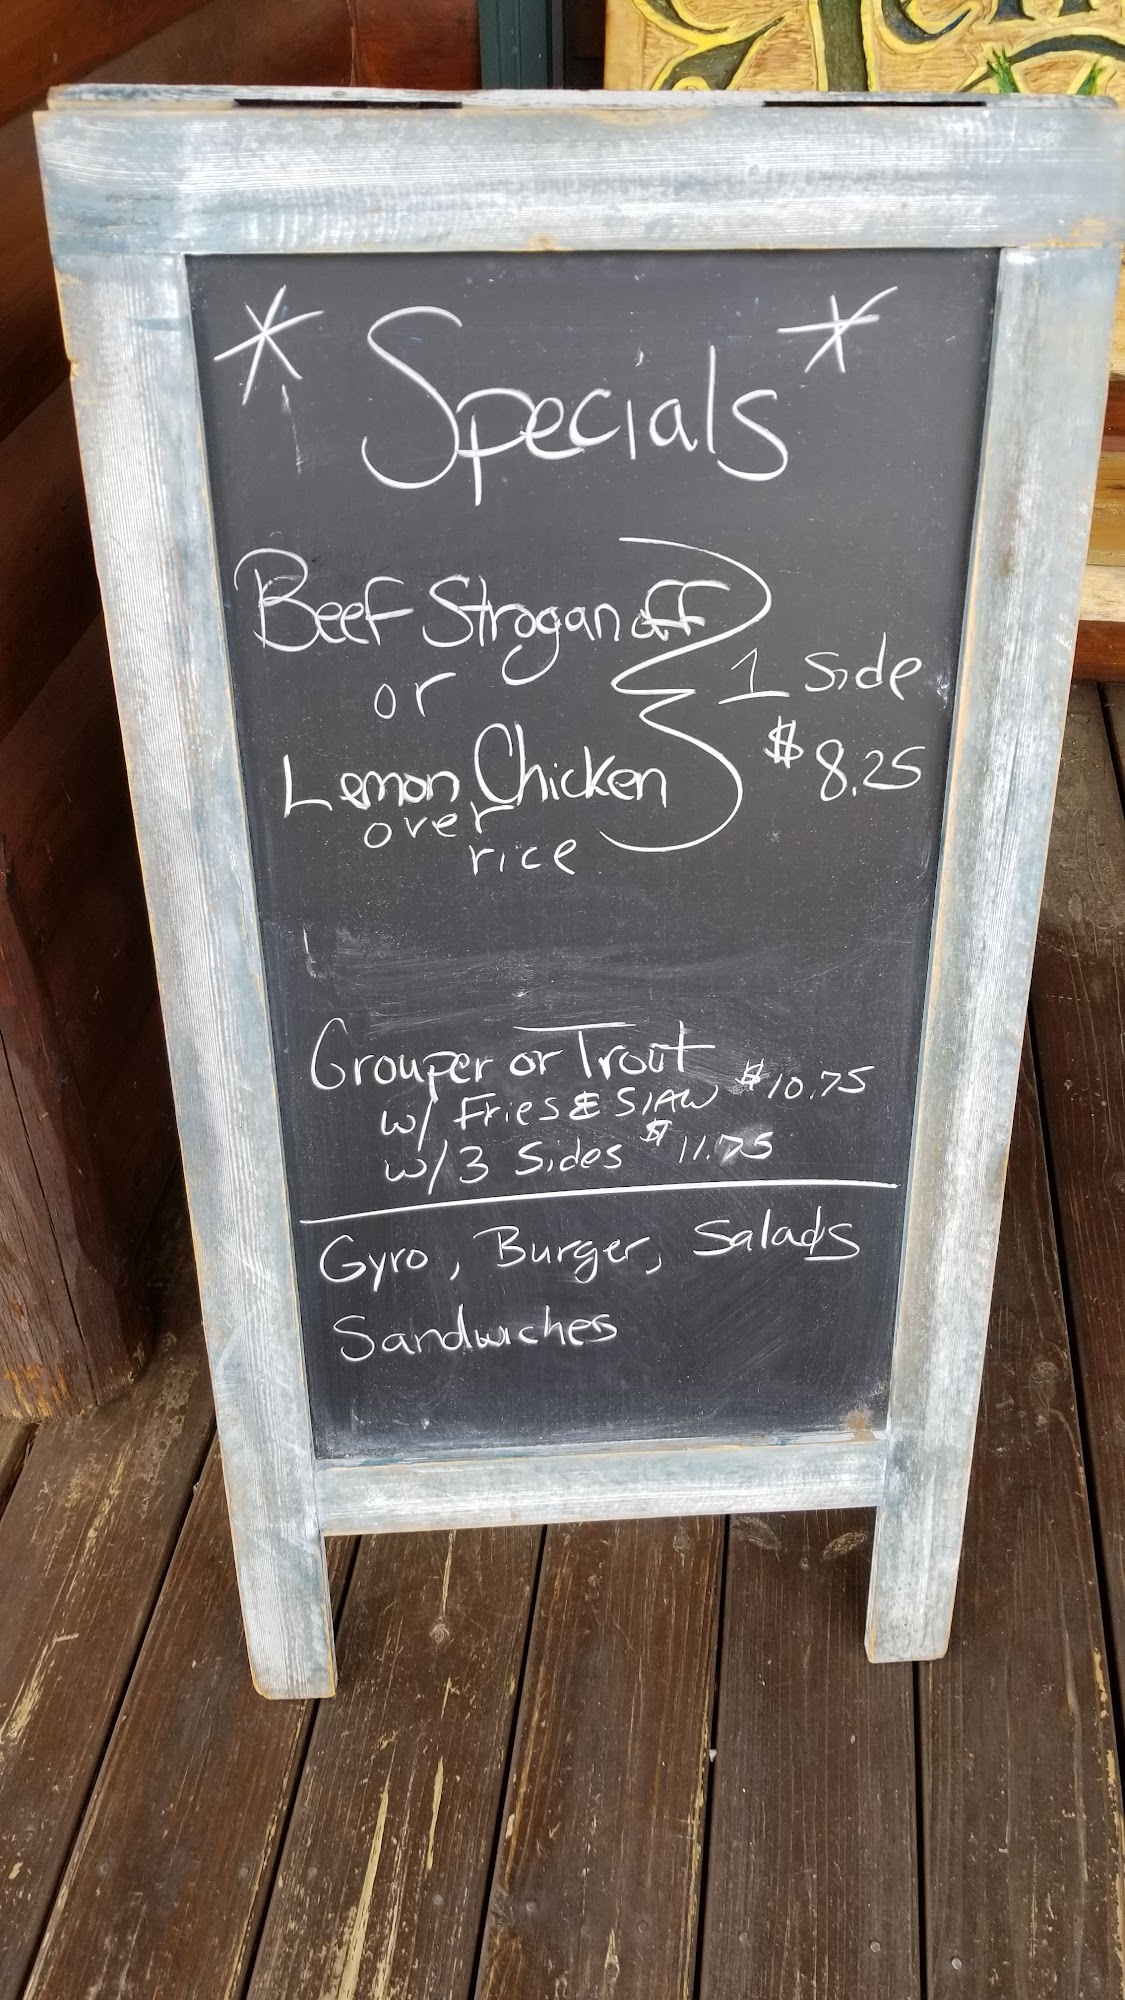 * Specials *
Beef Stroganoff
or
Lemon Chicken
over
rice
1 Side
$8.25
Grouper or Trout
w/ Fries & Slaw $10.75
w/3 Sides $11.75
Gyro, Burger, Salads
Sandwiches